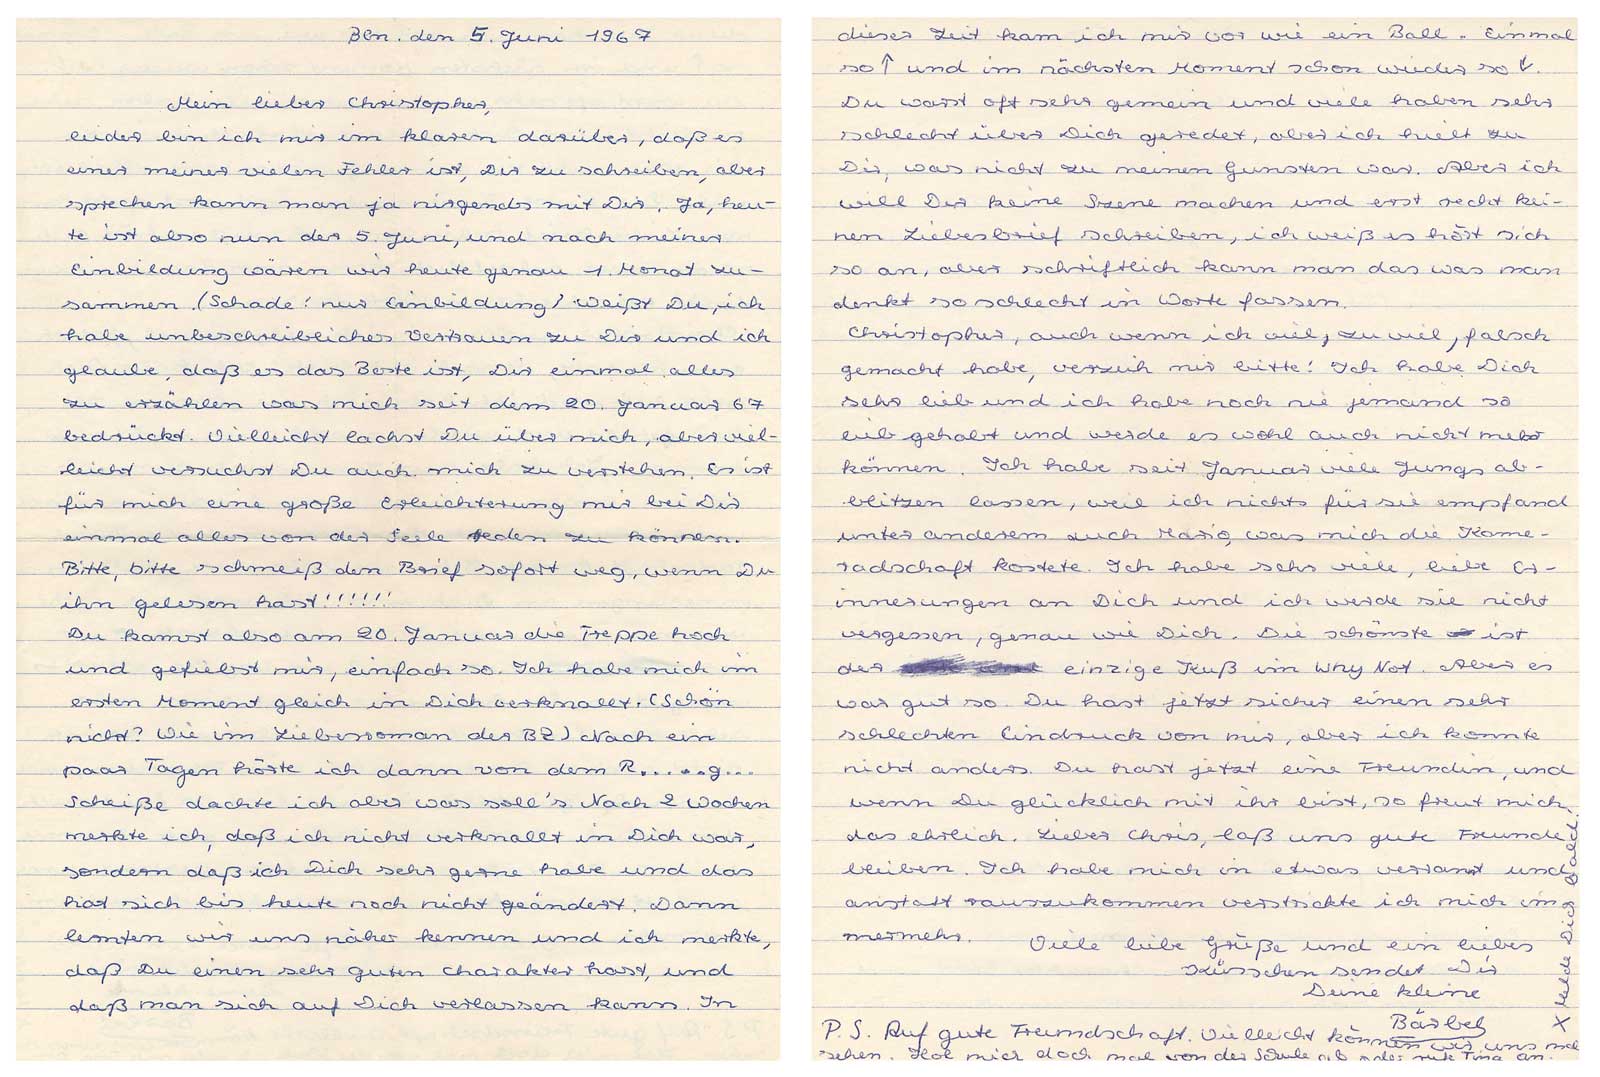 Bln. den 5. Juni 1967
Mein lieber Christopher,
leider bin ich mir im klaren darüber, daß es
einer meiner vielen Fehler ist, Dir zu schreiben, aber
sprechen kann man ja nirgends mit Dir. Ja, heu-
te ist also nun der 5. Juni, und nach meiner
Einbildung wären wir heute genau 1. Monat zu-
sammen. (Schade! nur Einbildung) Weißt Du, ich
habe unbeschreibliches Vertrauen zu Dir und ich
glaube, daß es das Beste ist, Dir einmal alles
zu erzählen was mich seit dem 20. Januar 67
bedrückt. Vielleicht lachst Du über mich, aber viel-
leicht versuchst Du auch mich zu verstehen. Es ist
für mich eine große Erleichterung mir bei Dir
einmal alles von der Seele reden zu können.
Bitte, bitte schmeiß den Brief sofort weg, wenn Du
ihn gelesen hast!!!!!!
Du kamst also am 20. Januar die Treppe hoch
und gefielst mir, einfach so. Ich habe mich im
ersten Moment gleich in Dich verknallt. (Schön
nicht? Wie im Liebesroman der BZ) Nach ein
paar Tagen hörte ich dann von dem R.....g...
Scheiße dachte ich aber was soll's. Nach 2 Wochen
merkte ich, daß ich nicht verknallt in Dich war,
sondern daß ich Dich sehr gerne habe und das
hat sich bis heute noch nicht geändert. Dann
lernten wir uns näher kennen und ich merkte,
daß Du einen sehr guten Charakter hast, und
daß man sich auf Dich verlassen kann. In
dieser Zeit kam ich mir vor wie ein Ball. Einmal
so ↑ und im nächsten Moment schon wieder so ↓.
Du warst oft sehr gemein und viele haben sehr
schlecht über Dich geredet, aber ich hielt zu
Dir, was nicht zu meinen Gunsten war. Aber ich
will Dir keine Szene machen und erst recht kei-
nen Liebesbrief schreiben, ich weiß es hört sich
so an, aber schriftlich kann man das was man
denkt so schlecht in Worte fassen.
Christopher, auch wenn ich viel, zu viel, falsch
gemacht habe, verzeih mir bitte! Ich habe Dich
sehr lieb und ich habe noch nie jemand so
lieb gehabt und werde es wohl auch nicht mehr
können. Ich habe seit Januar viele Jungs ab-
blitzen lassen, weil ich nichts für sie empfand
unter anderem auch Mario, was mich die Kame-
radschaft kostete. Ich habe sehr viele, liebe Er-
innerungen an Dich und ich werde sie nicht
vergessen, genau wie Dich. Die schönste ist
der einzige Kuß im Why Not. Aber es
war gut so. Du hast jetzt sicher einen sehr
schlechten Eindruck von mir, aber ich konnte
nicht anders. Du hast jetzt eine Freundin, und
wenn Du glücklich mit ihr bist, so freut mich
das ehrlich. Lieber Chris, laß uns gute Freunde
bleiben. Ich habe mich in etwas verrannt und
anstatt rauszukommen verstrickte ich mich im
mermehr.
Viele liebe Grüße und ein liebes
Küsschen sendet Dir
Deine kleine
Bärbel
P.S. Auf gute Freundschaft. Vielleicht können wir uns mal
sehen. Hol mich doch mal von der Schule ab oder rufe Tina an.
X Melde Dich bald!